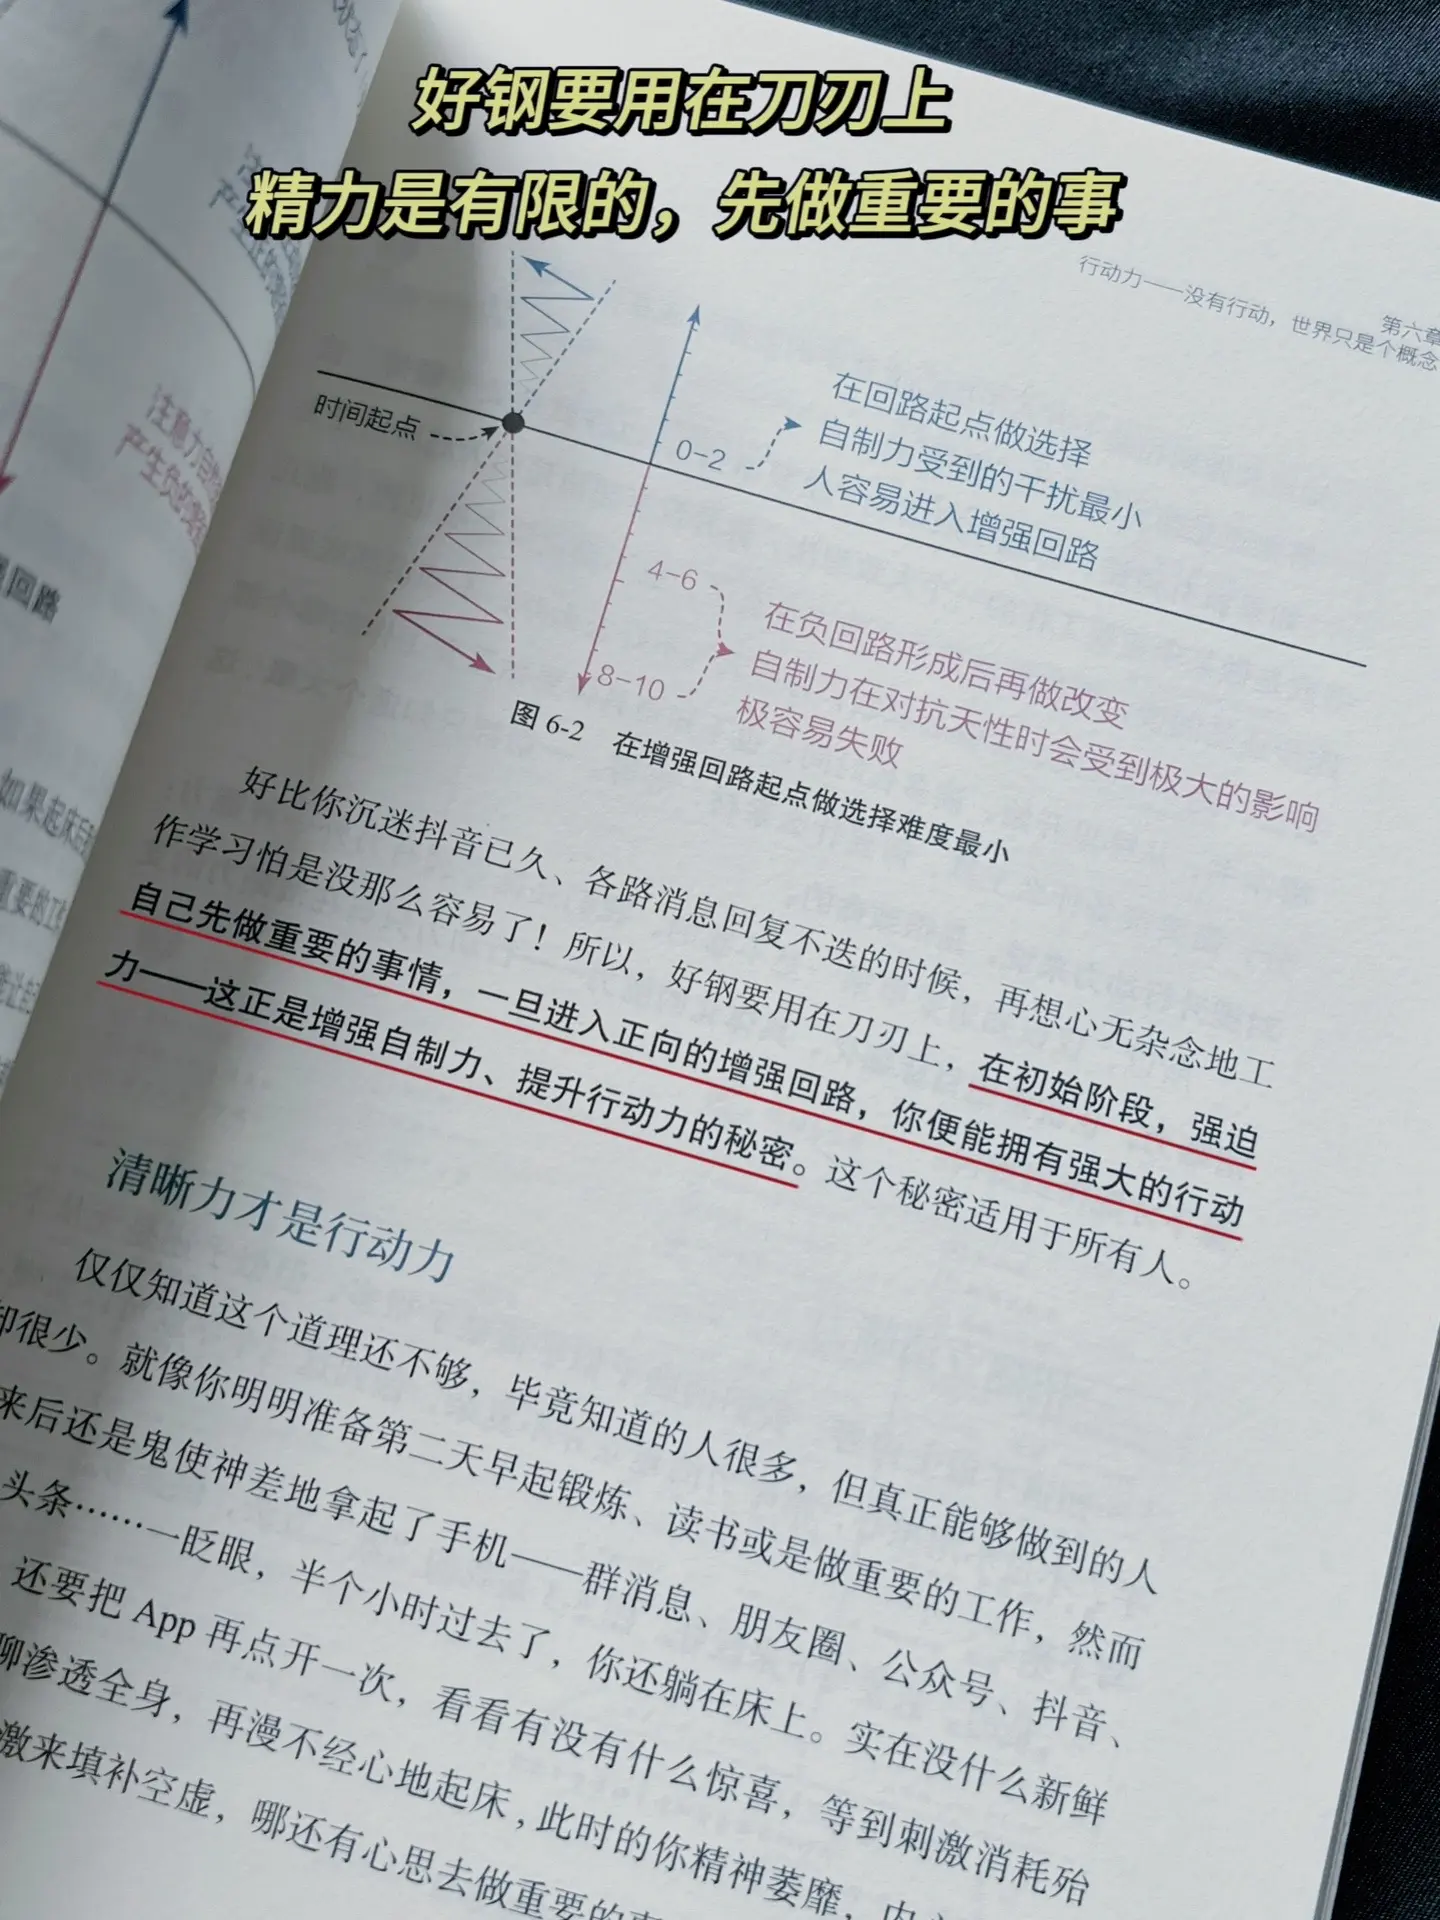 好钢要用在刀刃上
精力是有限的，先做重要的事
第六章
行动力——没有行动，世界只是个概念
时间起点
0-2
在回路起点做选择
自制力受到的干扰最小
人容易进入增强回路
4-6
8-10
在负回路形成后再做改变
自制力在对抗天性时会受到极大的影响
极容易失败
图 6-2 在增强回路起点做选择难度最小
好比你沉迷抖音已久、各路消息回复不迭的时候，再想心无杂念地工
作学习怕是没那么容易了！所以，好钢要用在刀刃上，在初始阶段，强迫
自己先做重要的事情，一旦进入正向的增强回路，你便能拥有强大的行动
力——这正是增强自制力、提升行动力的秘密。这个秘密适用于所有人。
清晰力才是行动力
仅仅知道这个道理还不够，毕竟知道的人很多，但真正能够做到的人
却很少。就像你明明准备第二天早起锻炼、读书或是做重要的工作，然而
来后还是鬼使神差地拿起了手机——群消息、朋友圈、公众号、抖音、
头条……一眨眼，半个小时过去了，你还躺在床上。实在没什么新鲜
还要把 App 再点开一次，看看有没有什么惊喜，等到刺激消耗殆
聊渗透全身，再漫不经心地起床，此时的你精神萎靡，内
激来填补空虚，哪还有心思去做重要的
注意力自然
产生负的
回路
如果起床后
重要的工作